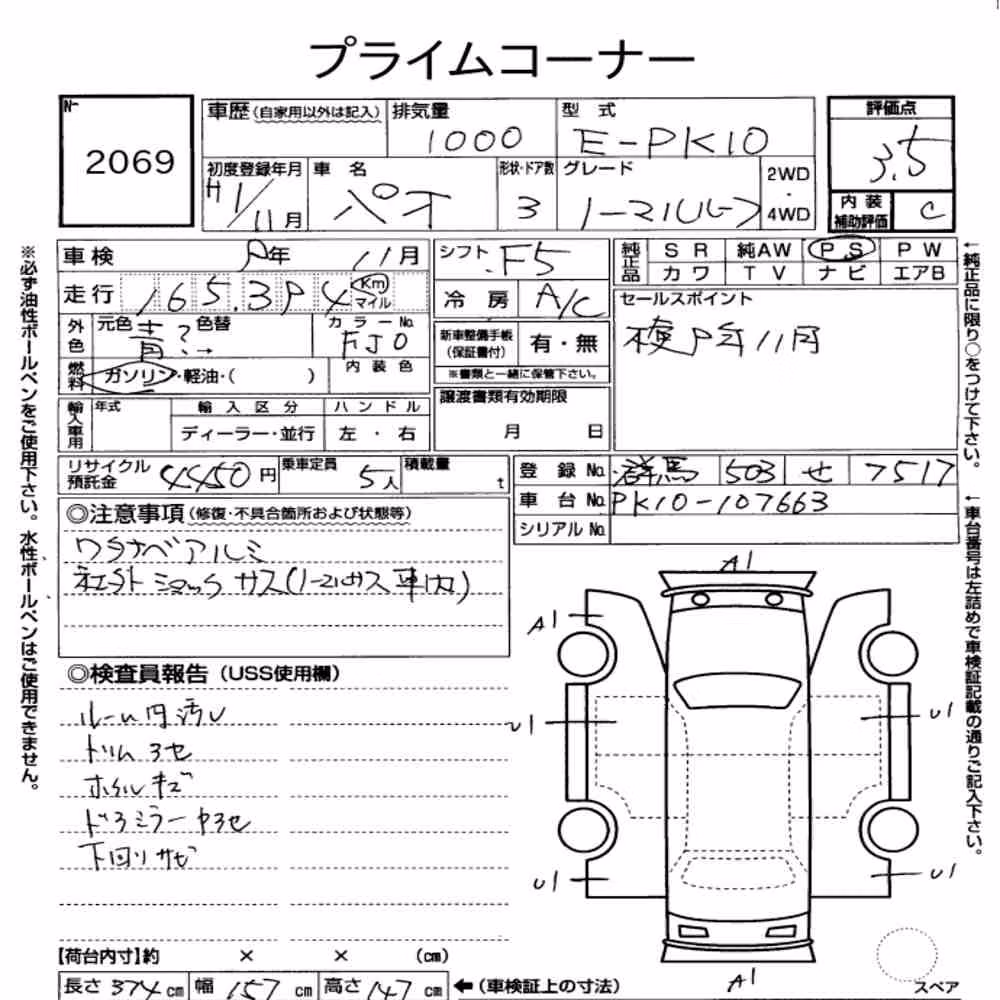 プライムコーナー
No.
2069
車歴(自家用以外は記入) 排気量 1000 型式 E-PK10
評価点 3.5
初度登録年月 H1/11月 車名 パオ 形状・ドア数 3 グレード ノーマルルーフ 2WD・4WD
内装補助評価 C
車検 年 11月 シフト F5
純正品 SR 純AW PS PW
カワ TV ナビ エアB
走行 165,394 Km マイル 冷房 A/C
セールスポイント
検 年11月
外色 元色 青 色替 カラーNo. FJ0
新車整備手帳(保証書付) 有・無
※書類と一緒に保管下さい。
燃料 ガソリン・軽油・( ) 内装色
譲渡書類有効期限
月 日
輸入車用 年式 輸入区分 ハンドル
ディーラー・並行 左・右
リサイクル預託金 4450円 乗車定員 5人 積載量 t
登録No. 群馬 503 せ 7517
車台No. PK10-107663
シリアルNo.
◎注意事項(修復・不具合箇所および状態等)
ワタナベアルミ
社外 ショック サス(ノーマルサス車内)
◎検査員報告(USS使用欄)
ルーム内汚レ
トリム
ホイルキズ
ドアミラー
下回りサビ
A1
A1
U1
U1
U1
U1
A1
スペア
【荷台内寸】約 × × (cm)
長さ 374cm 幅 157cm 高さ 147cm ←(車検証上の寸法)
※必ず油性ボールペンをご使用下さい。水性ボールペンはご使用できません。
←純正品に限り○をつけて下さい。
←車台番号は左詰めで車検証記載の通りご記入下さい。